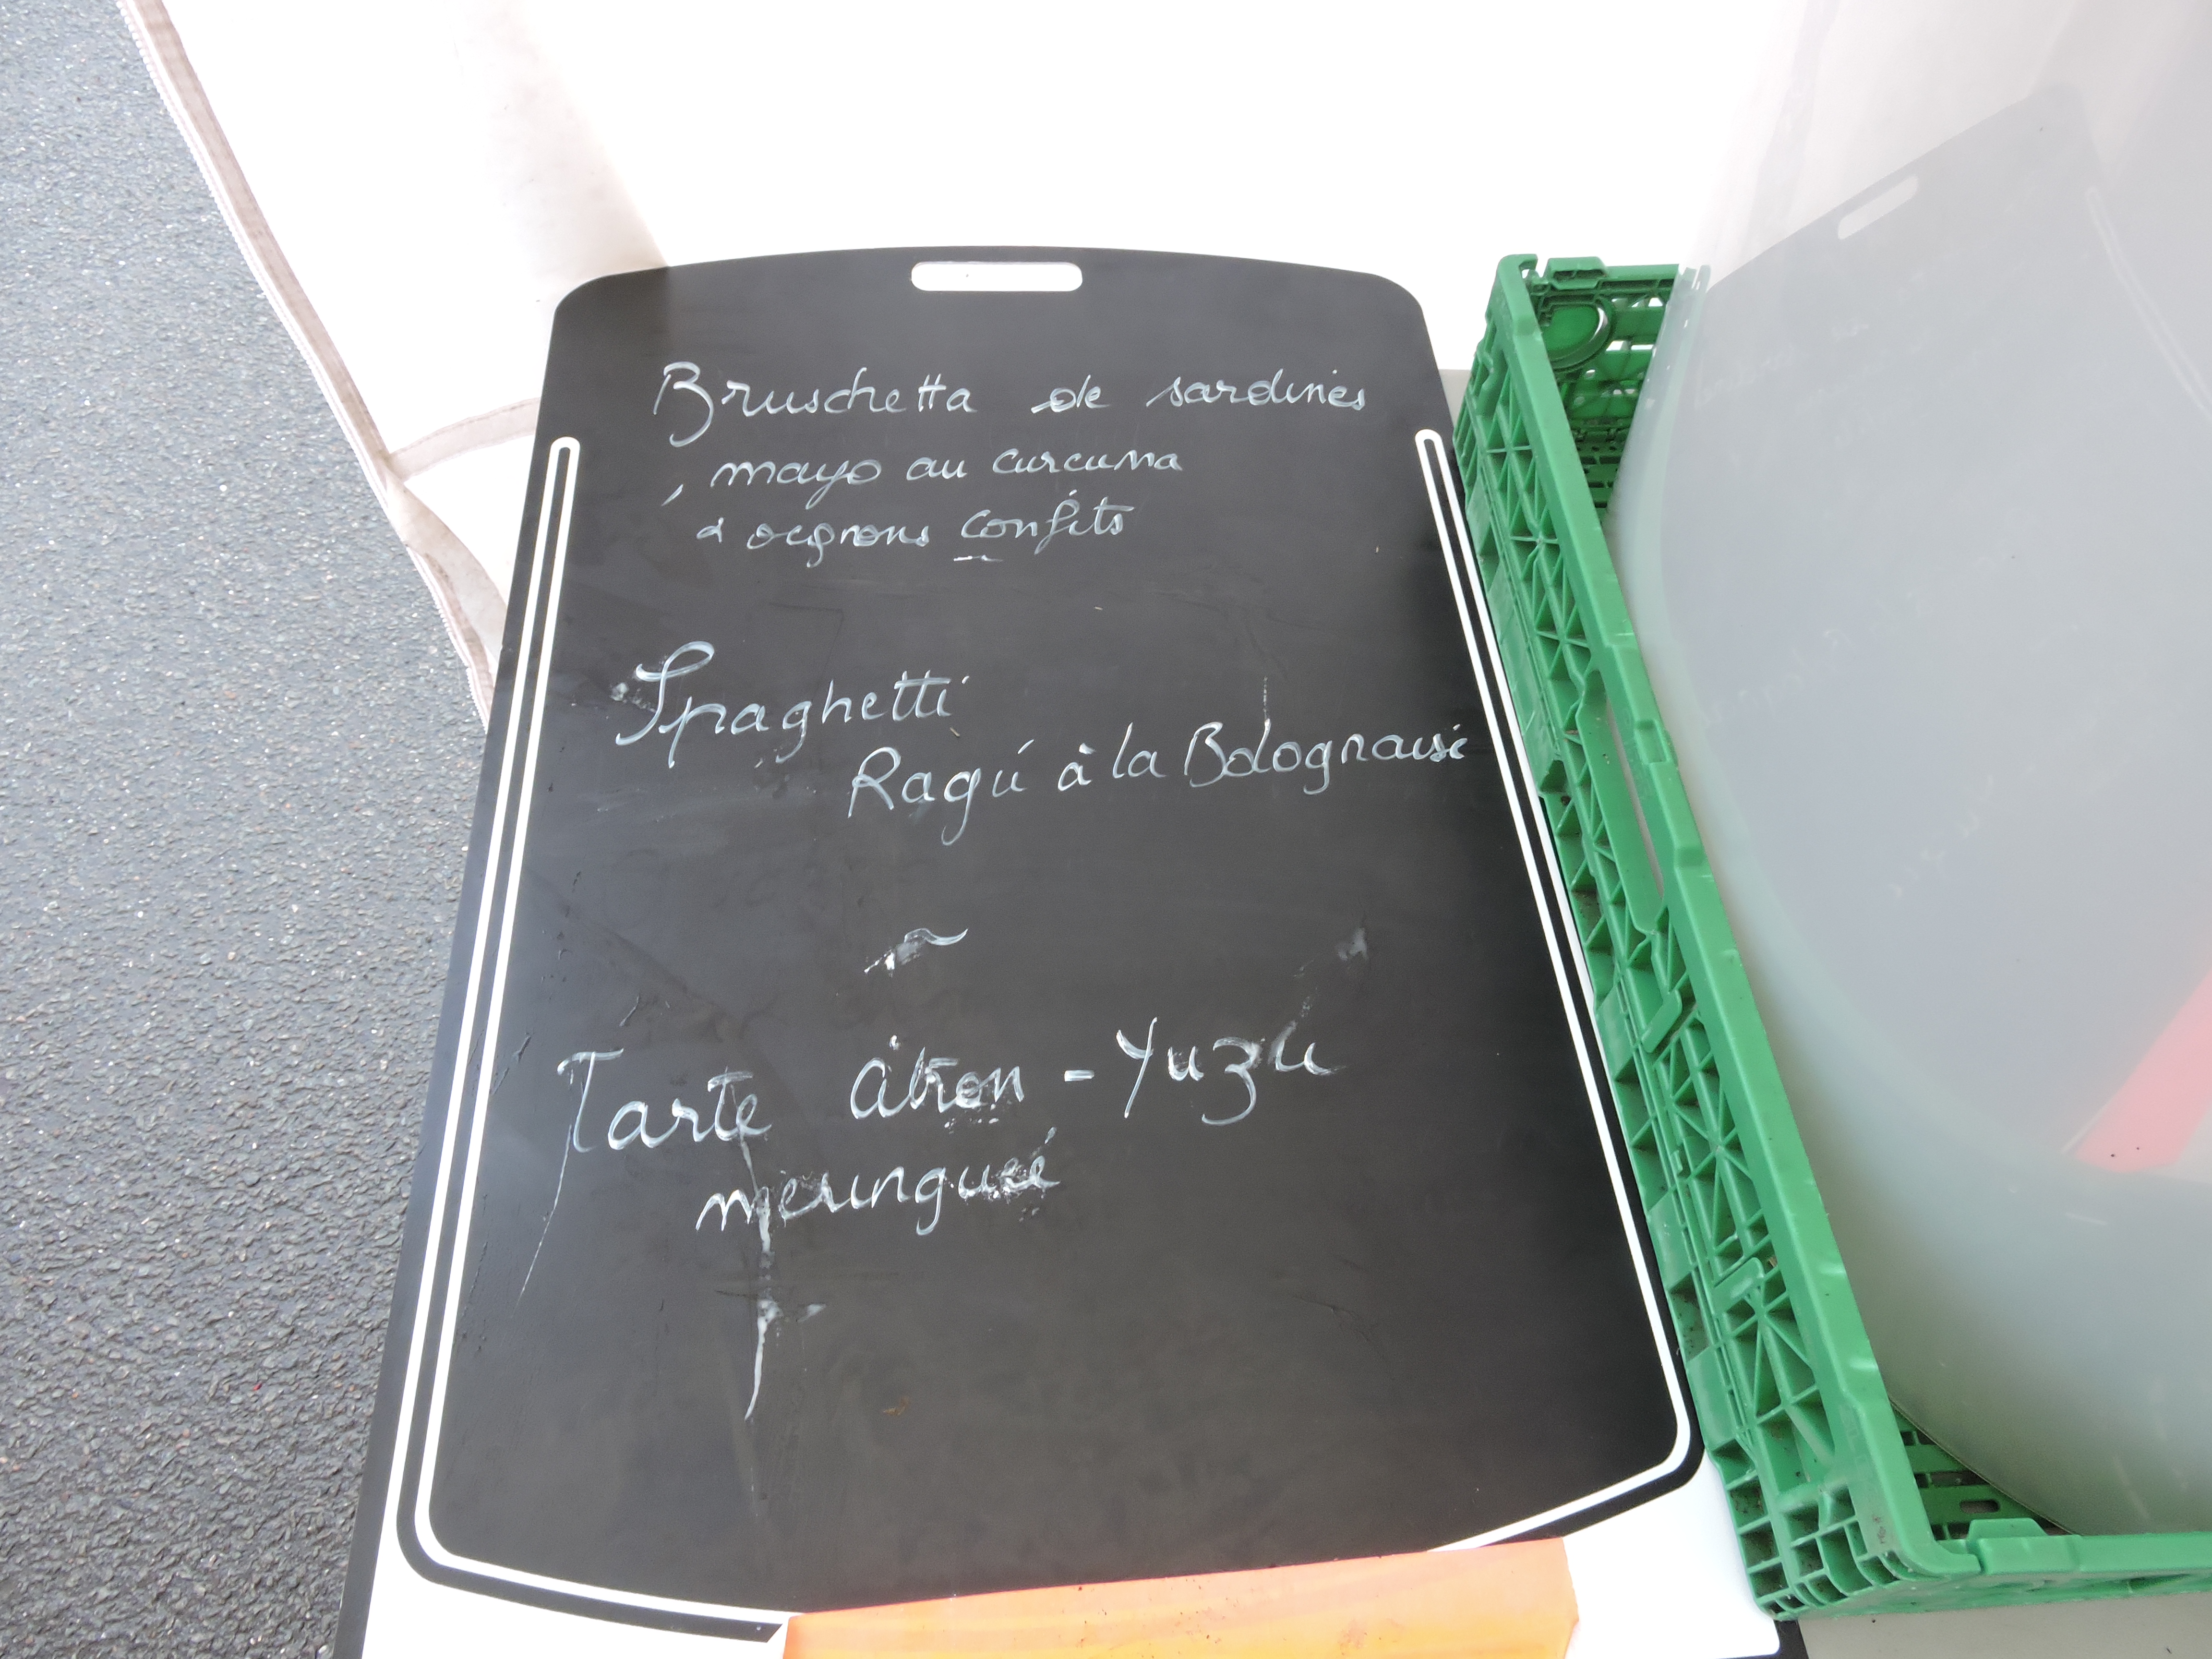 Bruschetta de sardines
, mayo au curcuma
& oignons confits
Spaghetti
Ragú à la Bolognaise
~
Tarte Citron - Yuzu
meringuée